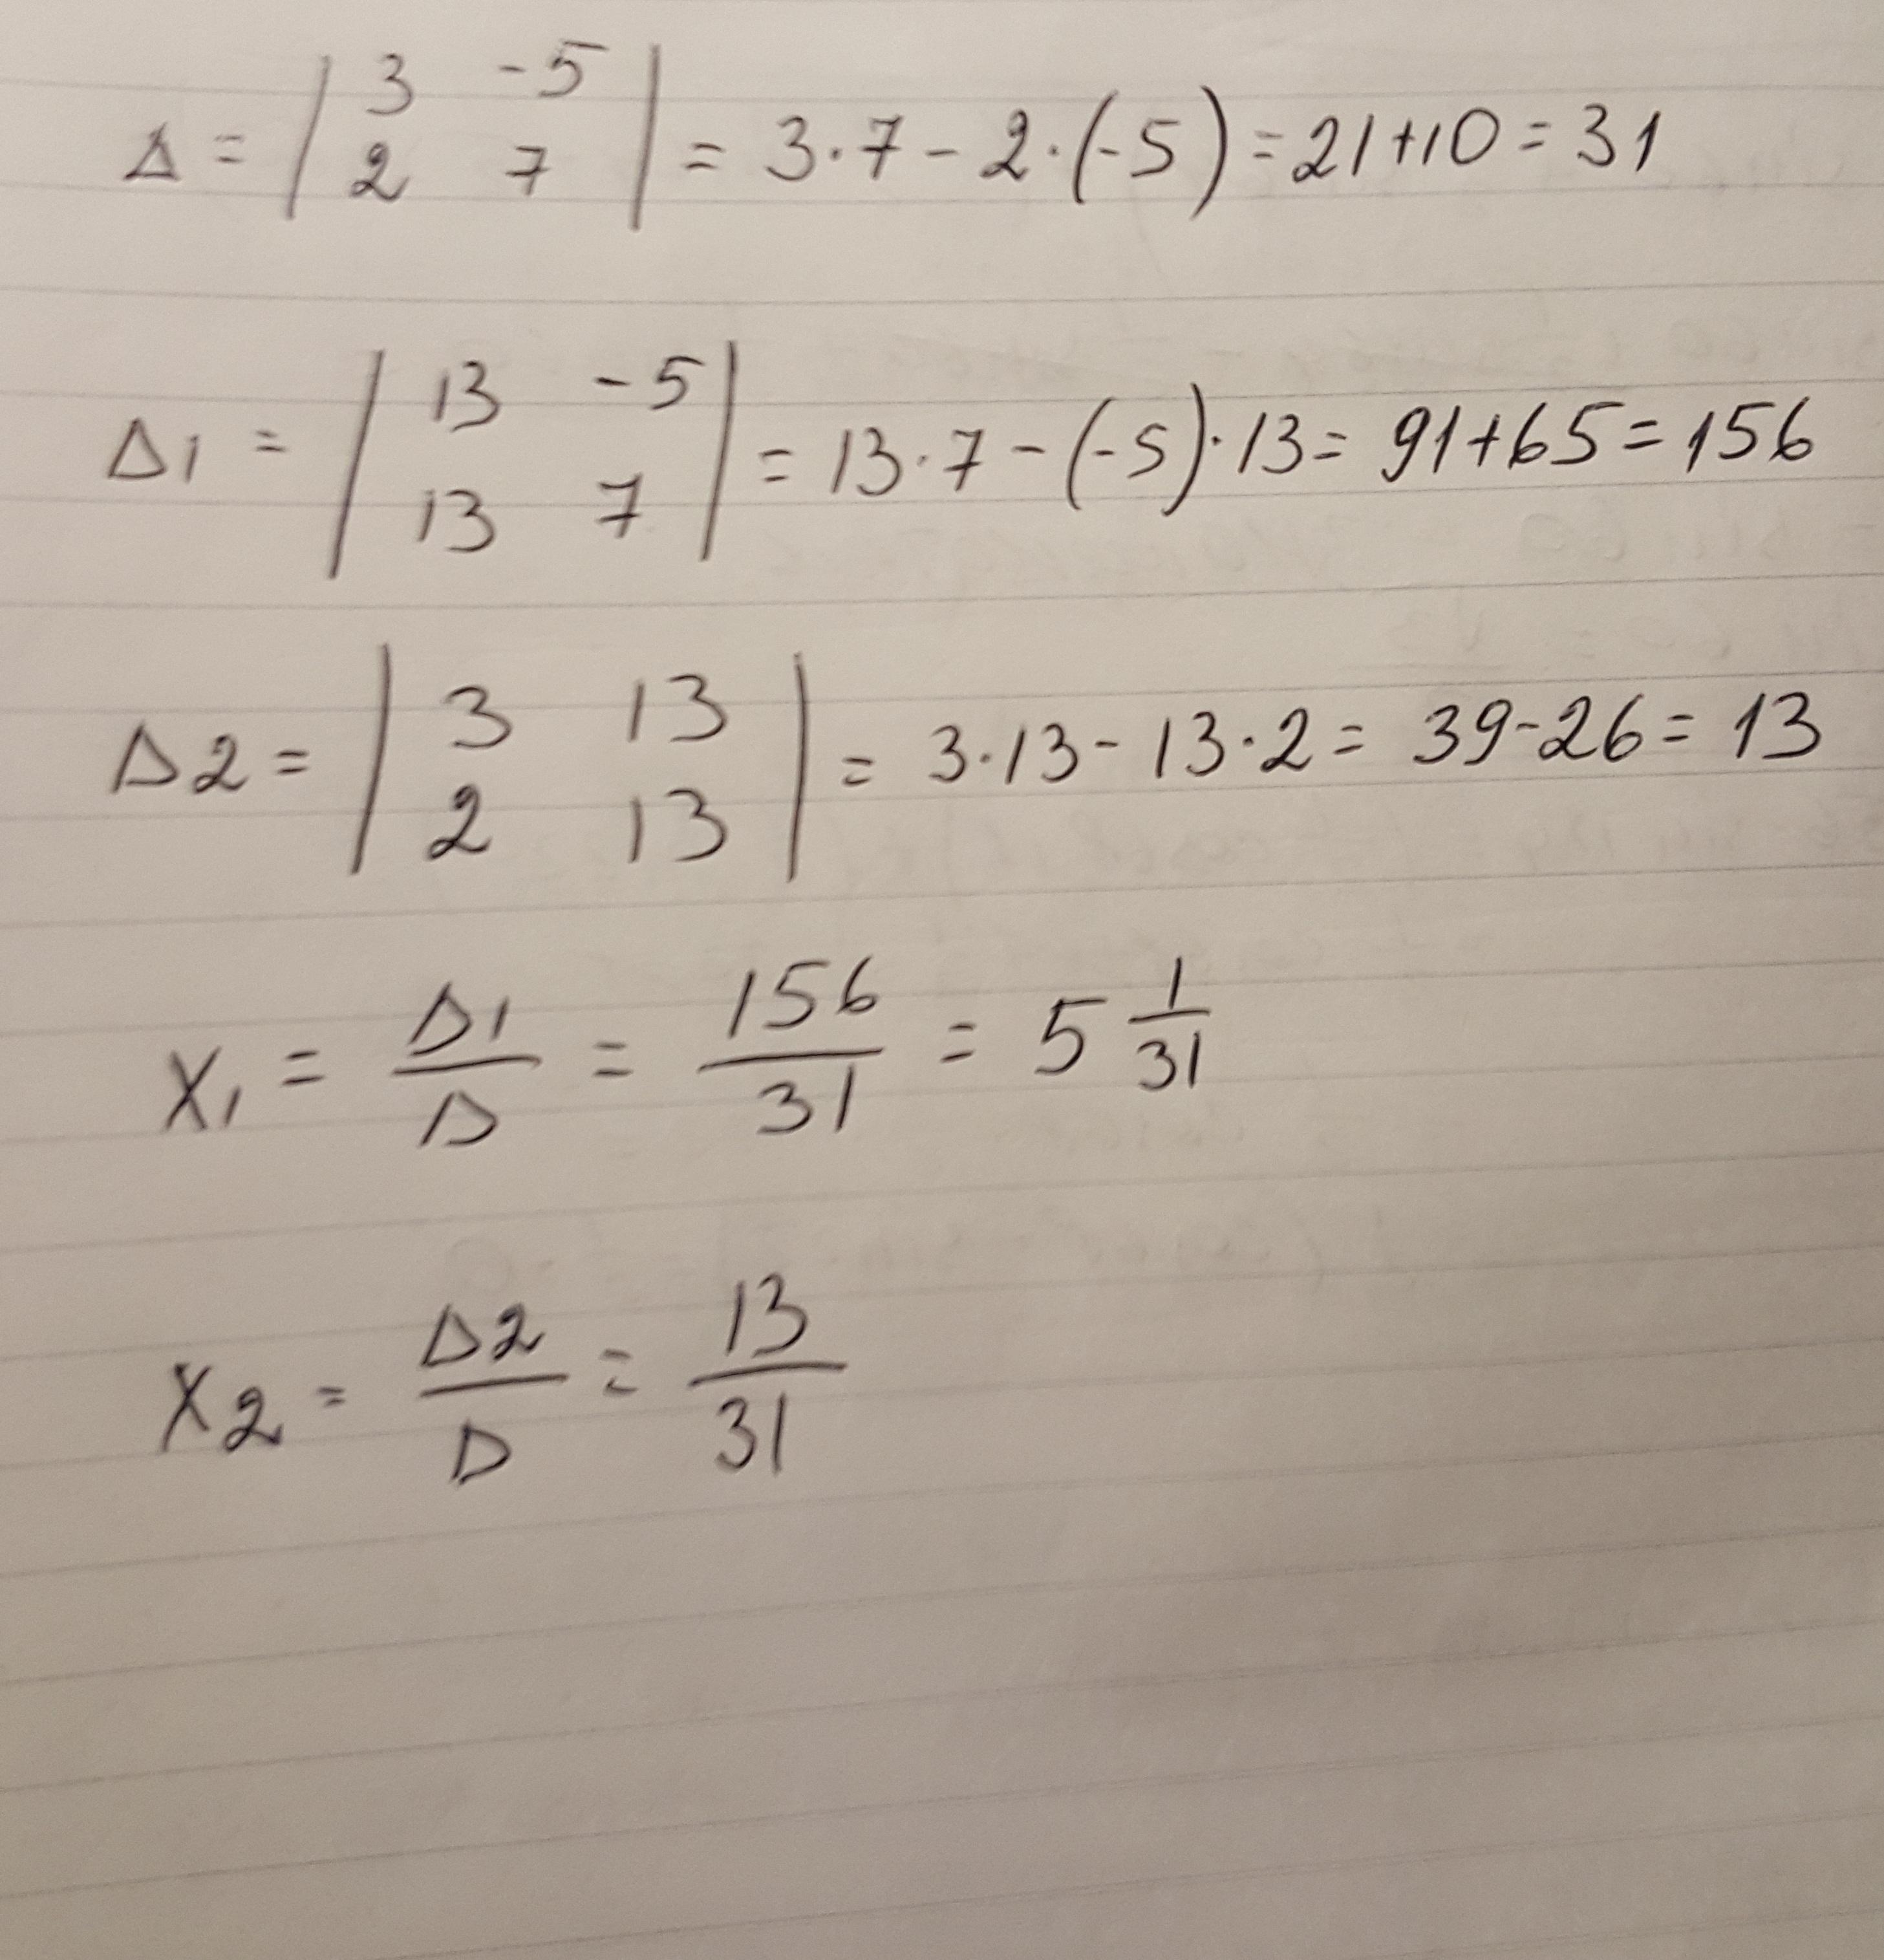 Δ = | 3 -5 |
| 2 7 | = 3·7 - 2·(-5) = 21+10 = 31
Δ1 = | 13 -5 |
| 13 7 | = 13·7 - (-5)·13 = 91+65 = 156
Δ2 = | 3 13 |
| 2 13 | = 3·13 - 13·2 = 39-26 = 13
X₁ = Δ1/Δ = 156/31 = 5 1/31
X2 = Δ2/Δ = 13/31